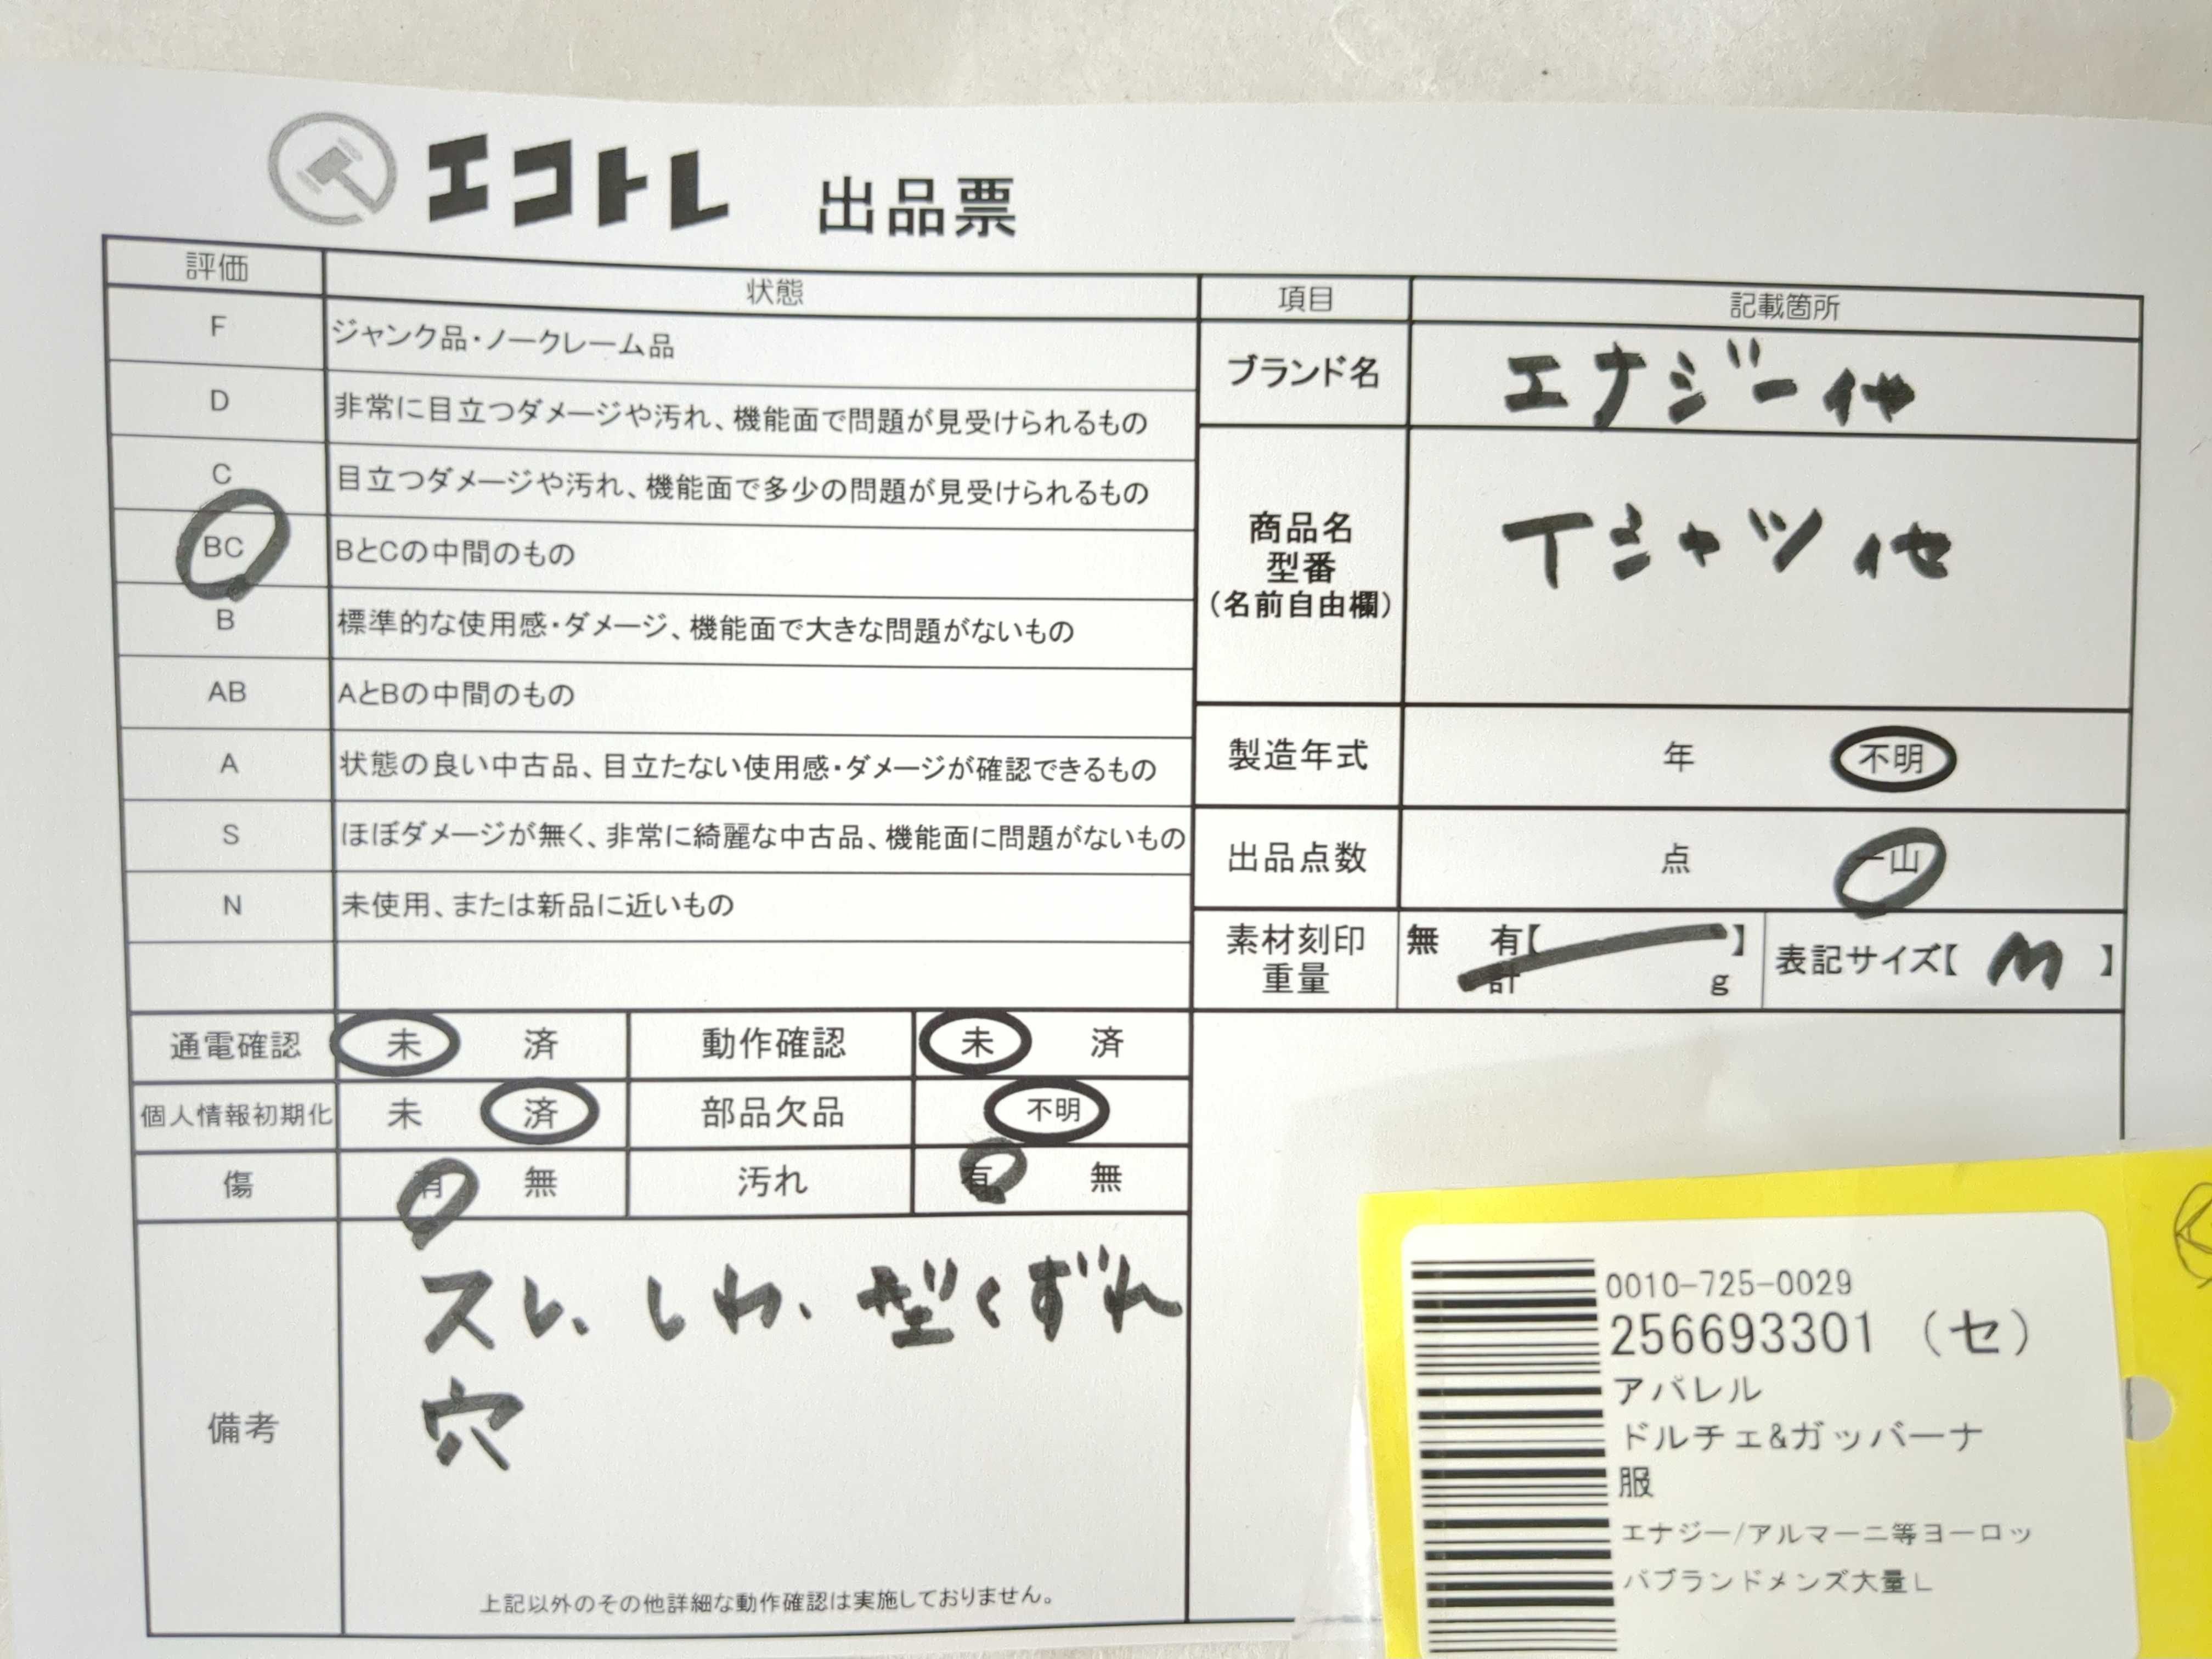 エコトレ 出品票
評価 状態
F ジャンク品・ノークレーム品
D 非常に目立つダメージや汚れ、機能面で問題が見受けられるもの
C 目立つダメージや汚れ、機能面で多少の問題が見受けられるもの
BC BとCの中間のもの
B 標準的な使用感・ダメージ、機能面で大きな問題がないもの
AB AとBの中間のもの
A 状態の良い中古品、目立たない使用感・ダメージが確認できるもの
S ほぼダメージが無く、非常に綺麗な中古品、機能面に問題がないもの
N 未使用、または新品に近いもの
通電確認 未 済 動作確認 未 済
個人情報初期化 未 済 部品欠品 不明
傷 有 無 汚れ 有 無
備考
スレ、しわ、型くずれ
穴
上記以外のその他詳細な動作確認は実施しておりません。
項目 記載箇所
ブランド名 エナジー他
商品名
型番
(名前自由欄)
Tシャツ他
製造年式 年 不明
出品点数 点 一山
素材刻印 無 有【 】
重量 計 g
表記サイズ【 M 】
0010-725-0029
256693301 (セ)
アパレル
ドルチェ&ガッバーナ
服
エナジー/アルマーニ等ヨーロッ
パブランドメンズ大量L